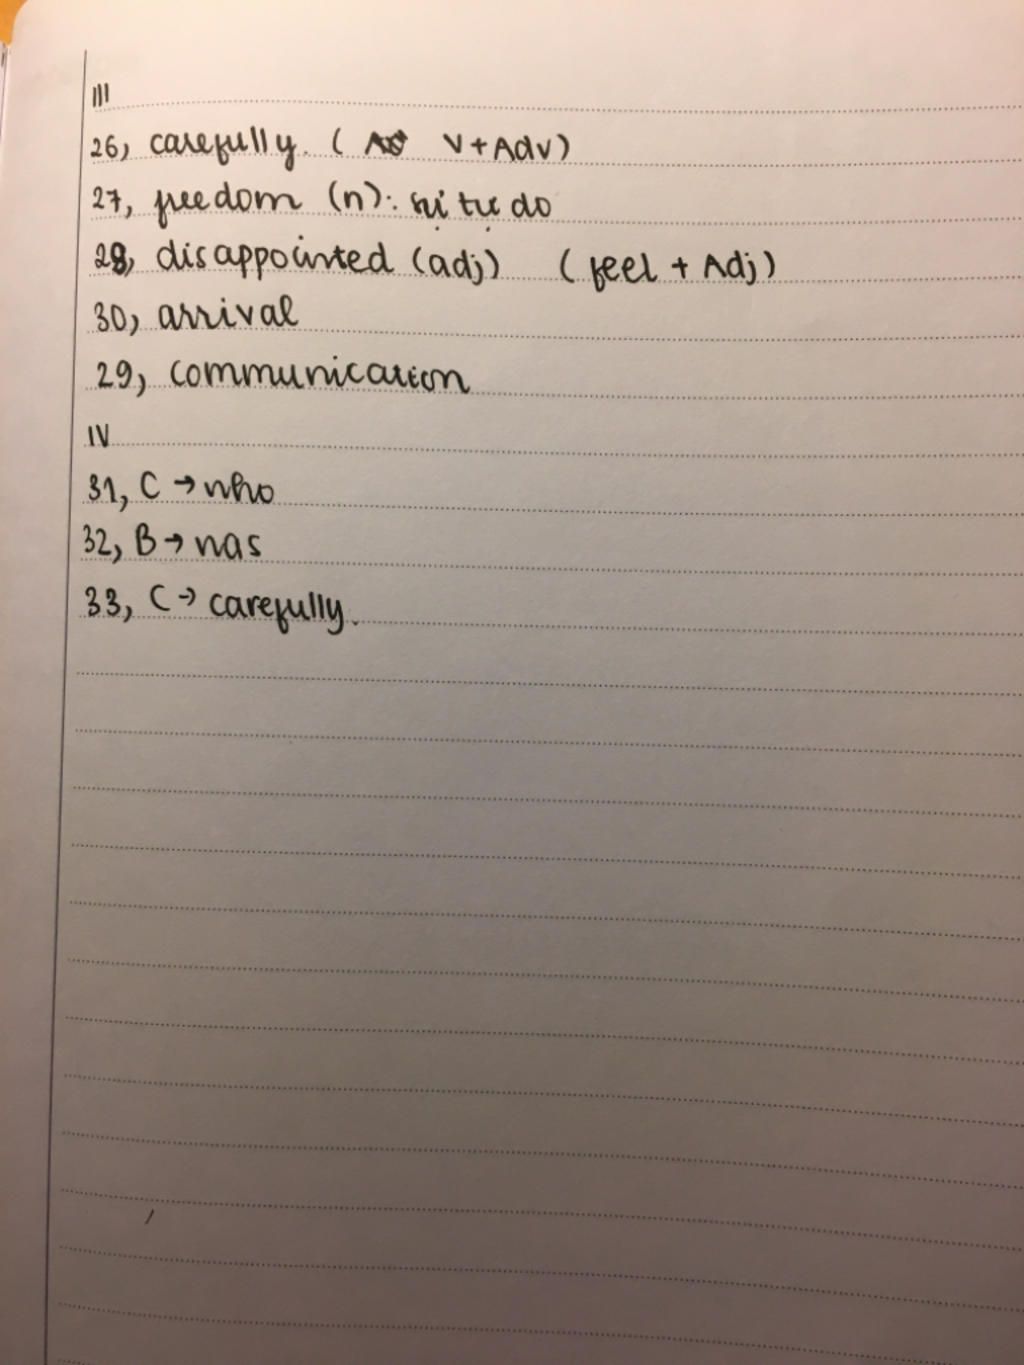 III
26, carefully. ( V + Adv)
27, freedom (n): sự tự do
28, disappointed (adj) (feel + Adj)
30, arrival
29, communication
IV
31, C → who
32, B → was
33, C → carefully.